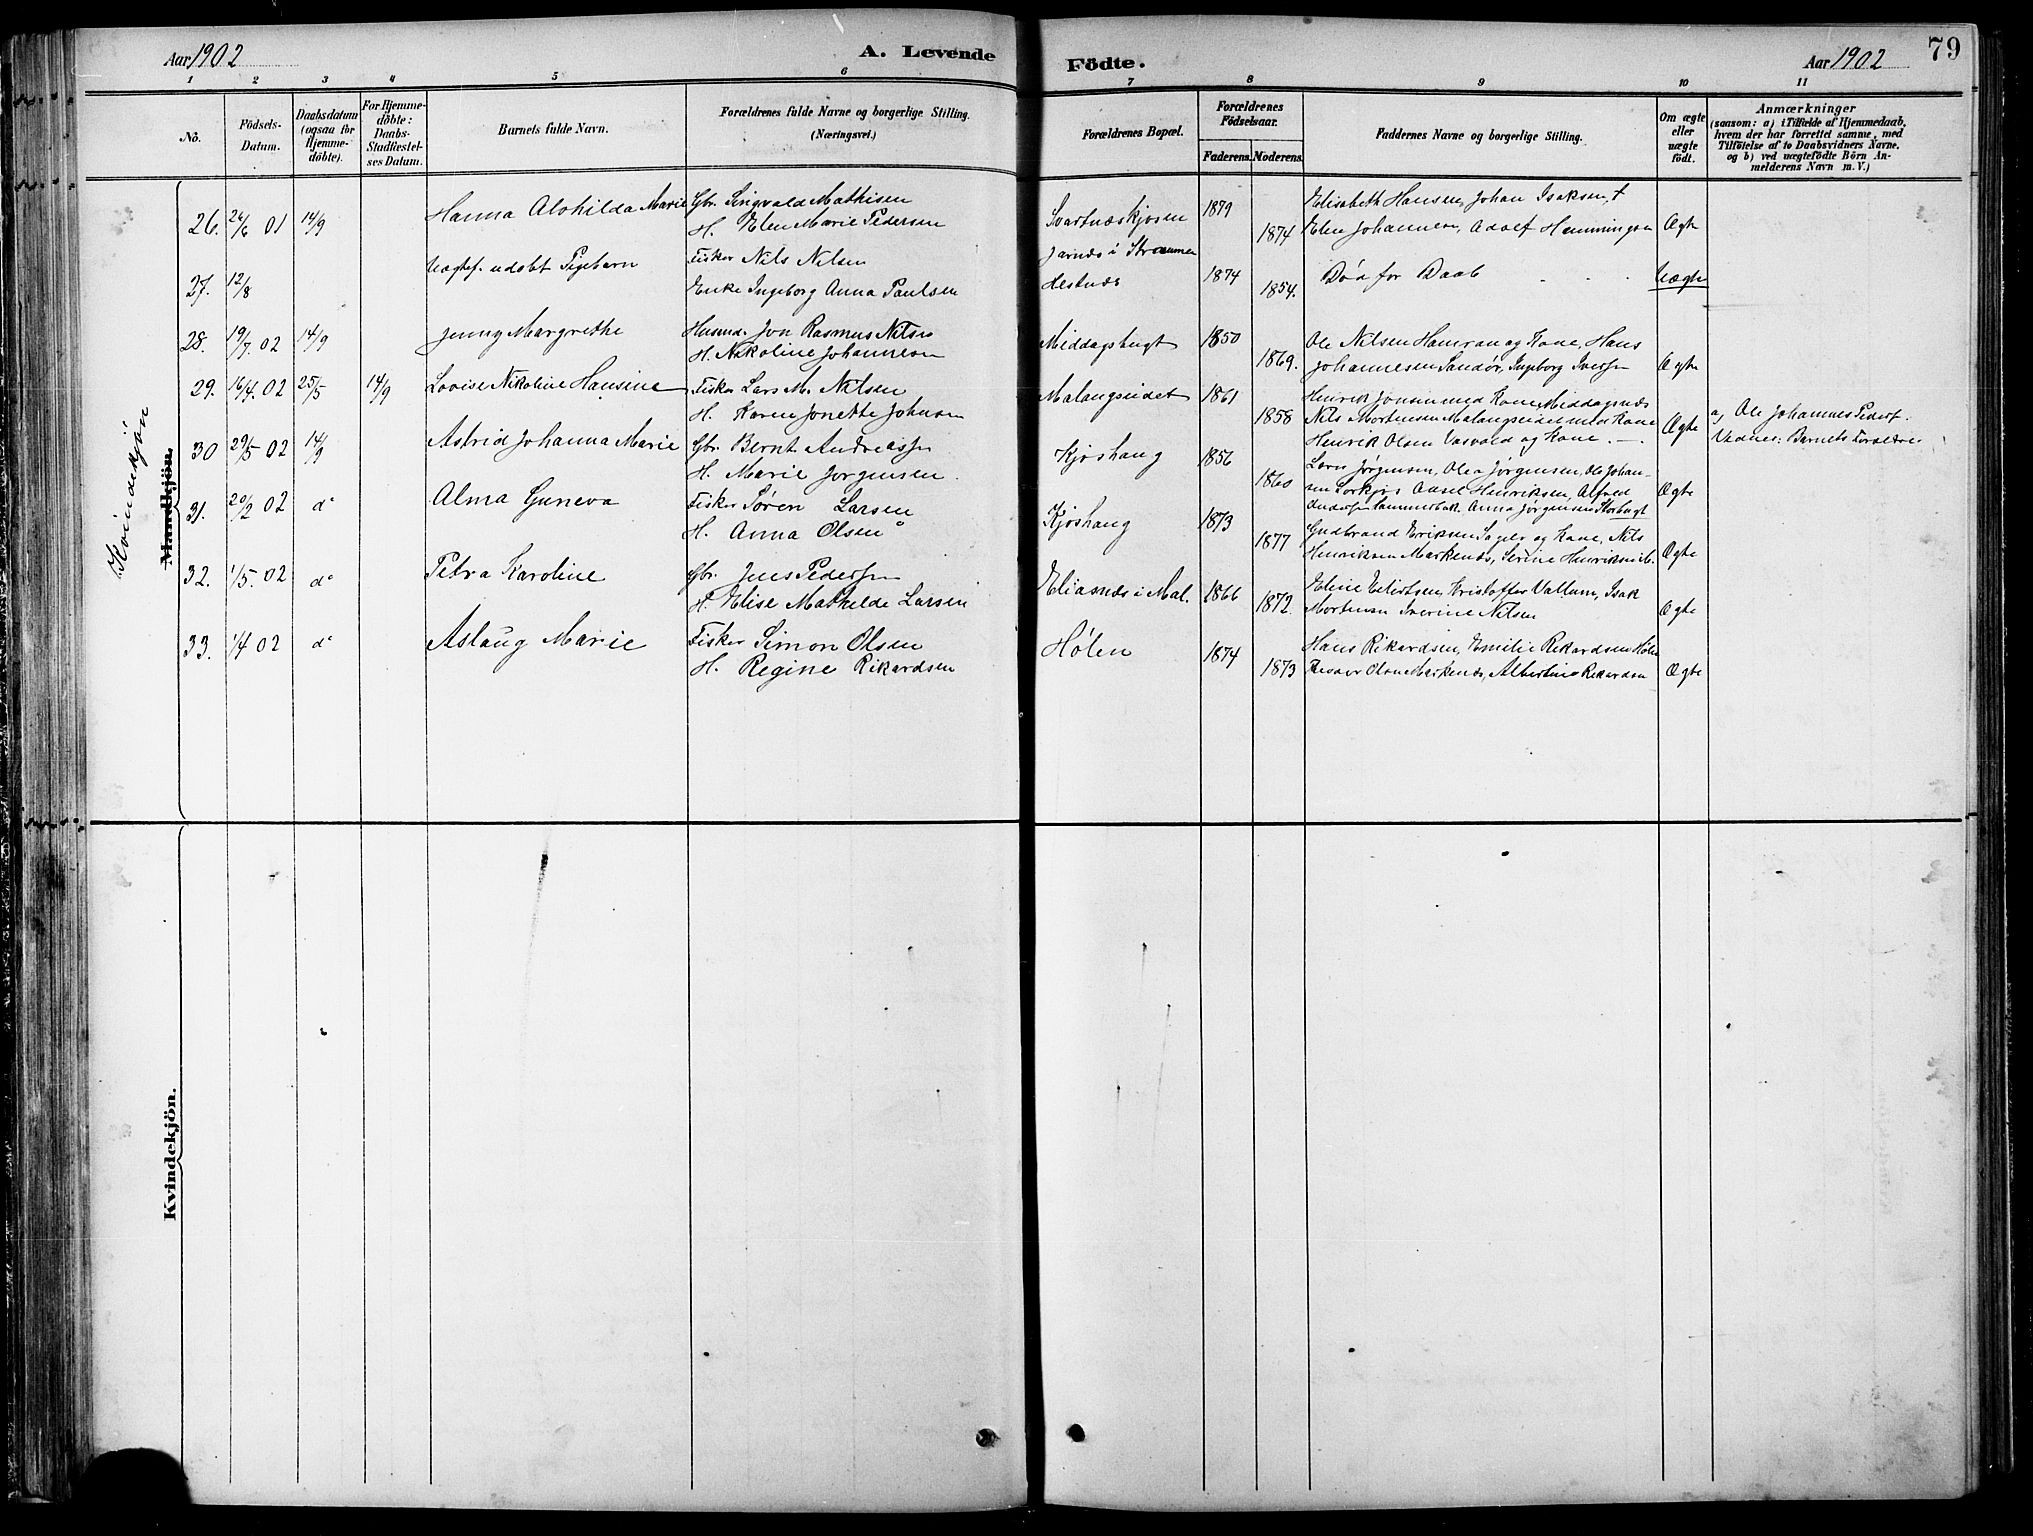 Aar 1902
A. Levende
Födte.
Aar 1902
79
1 2 3 4 5 6 7 8 9 10 11
No.
Födsels-
Datum.
Daabsdatum
(ogsaa for
Hjemme-
döbte).
For Hjemme-
döbte:
Daabs-
Stadfæstel-
ses Datum.
Barnets fulde Navn.
Forældrenes fulde Navne og borgerlige Stilling.
(Næringsvei.)
Forældrenes Bopæl.
Forældrenes
Födselsaar.
Faderens.
Moderens.
Faddernes Navne og borgerlige Stilling.
Om ægte
eller
uægte
födt.
Anmærkninger
(saasom: a) i Tilfælde af Hjemmedaab,
hvem der har forrettet samme, med
Tilföielse af to Daabsvidners Navne,
og b) ved uægtefödte Börn An-
melderens Navn m. V.)
Kvindekjön
Mandkjön.
26. 26/6 01 14/9 Hanna Alohilda Marie Gbr. Singvald Mathisen Svartnæskjosen 1879 Elisabeth Hansen, Johan Isaksen, +
H. Elen Marie Pedersen 1874 Elen Johannesen, Adolf Hemmingsen Ægte
27. 12/8 Uægtef. udöbt Pigebarn Fisker Nils Nilsen Jarnæs i Strømmen 1874 Død før Daab Uægte
Enke Ingeborg Anna Paulsen Hestnæs 1854.
28. 19/7. 02 14/9 Jenny Margrethe Husmd. Jon Rasmus Nilsen Middagsbugt 1850 Ole Nilsen Hamran og Kone, Hans
H. Nikoline Johannesen 1869. Johannesen Sandør, Ingeborg Iversen Ægte
29. 16/4. 02 25/5 14/9 Lovise Nikoline Hansine Fisker Lars M. Nilsen Malangseidet 1861 Henrik Jonsen med Kone, Middagsnæs
H. Karen Jonette Johnsen 1858 Nils Mortensen Malangseidet med Kone Ægte a, Ole Johannes Peders.
Henrik Olsen og Kone. Vidner: Barnets Forældre
30 29/5 02 14/9 Astrid Johanna Marie Gbr. Bernt Andreassen Kjoshaug 1856
H. Marie Jørgensen. 1860 Lars Jørgensen, Olea Jørgensen, Ole Johan-
sen Henriksen, Alfred Ægte
31. 20/2 02 do Alma Guneva Fisker Søren Larsen Kjoshaug 1873 Anna Jørgensen Storbugt
H. Anna Olsen 1877 Gudbrand Eriksen og Kone, Nils
Henriksen Markenæs, Serine Henriksen M. Ægte
32. 1/5. 02 do Petra Karoline Gbr. Jens Pedersen Eliasnæs i Mal. 1866 Eline Eilertsen, Kristoffer Vallum, Isak
H. Elise Mathilde Larsen 1872. Mortensen Iverine Nilsen Ægte
33. 1/4 02 do Aslaug Marie Fisker Simon Olsen Hølen 1874 Hans Rikardsen, Emilie Rikardsen Hølen
H. Regine Rikardsen 1873 Teodor Olsen Markenæs, Albertine Rikardsen Ægte
Kvindekjön.